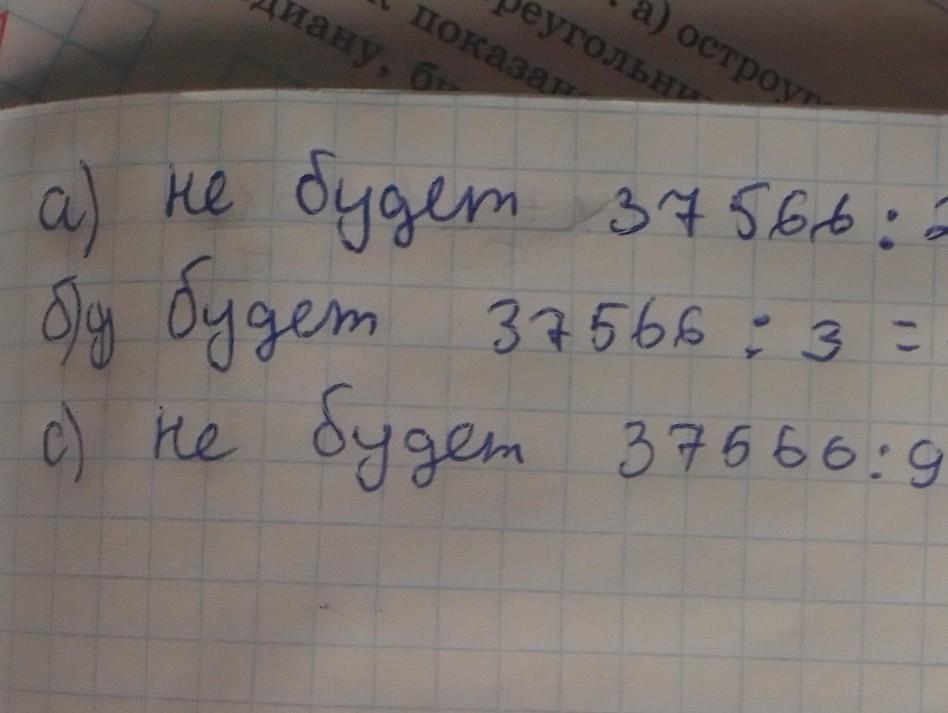 а) остроуг
реугольни
показан
диану, бу
а) не будет 37566:2
б) будет 37566 : 3 =
с) не будет 37566:9